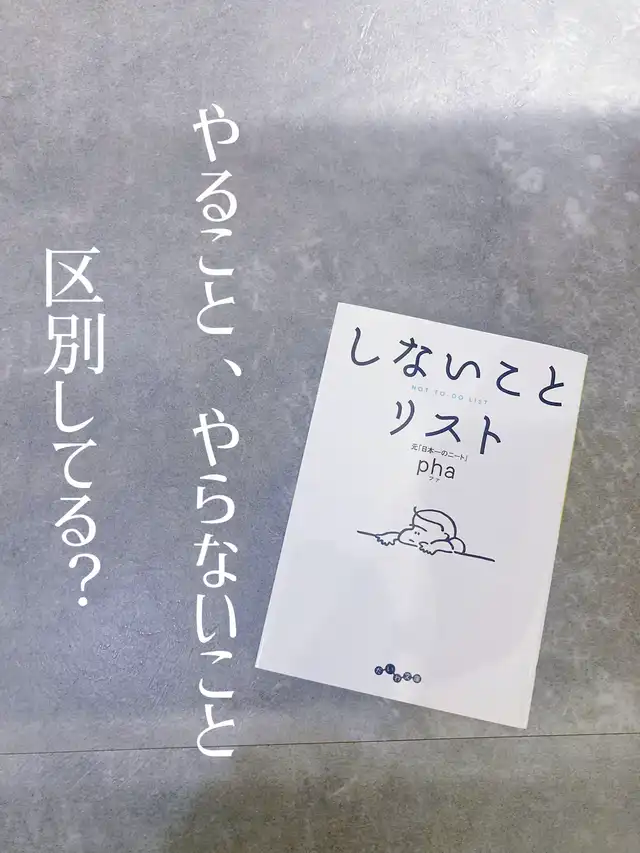 やること、やらないこと
区別してる？
しないこと
NOT TO DO LIST
リスト
元「日本一のニート」
pha
ファ
だいわ文庫